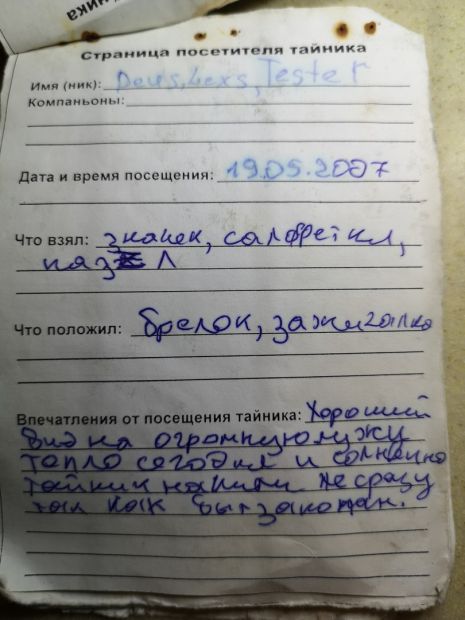 Страница посетителя тайника
Имя (ник): Deus, Lexs, Tester
Компаньоны:
Дата и время посещения: 19.05.2007
Что взял: значек, салфетки,
пазл
Что положил: брелок, зажигалка
Впечатления от посещения тайника: Хороший
вид на огромную лужу
тепло сегодня и солнечно
тайник нашли не сразу
так как был закопан.